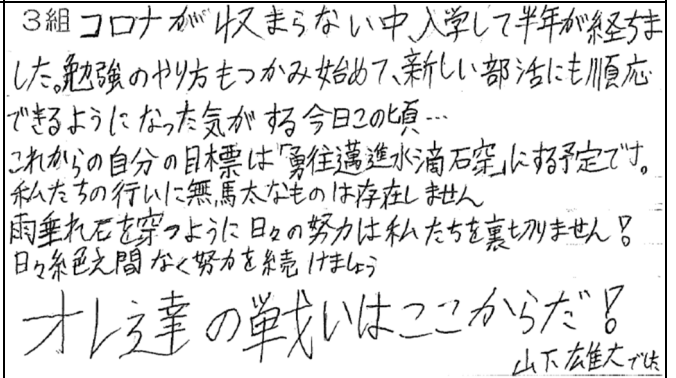 3組 コロナが収まらない中、入学して半年が経ちま
した。勉強のやり方もつかみ始めて、新しい部活にも順応
できるようになった気がする今日この頃…
これからの自分の目標は「勇往邁進水滴石穿」にする予定です。
私たちの行いに無馬太なものは存在しません
雨垂れ石を穿つように日々の努力は私たちを裏切りません!
日々絶え間なく努力を続けましょう
オレ達の戦いはここからだ!
山下雄大でした